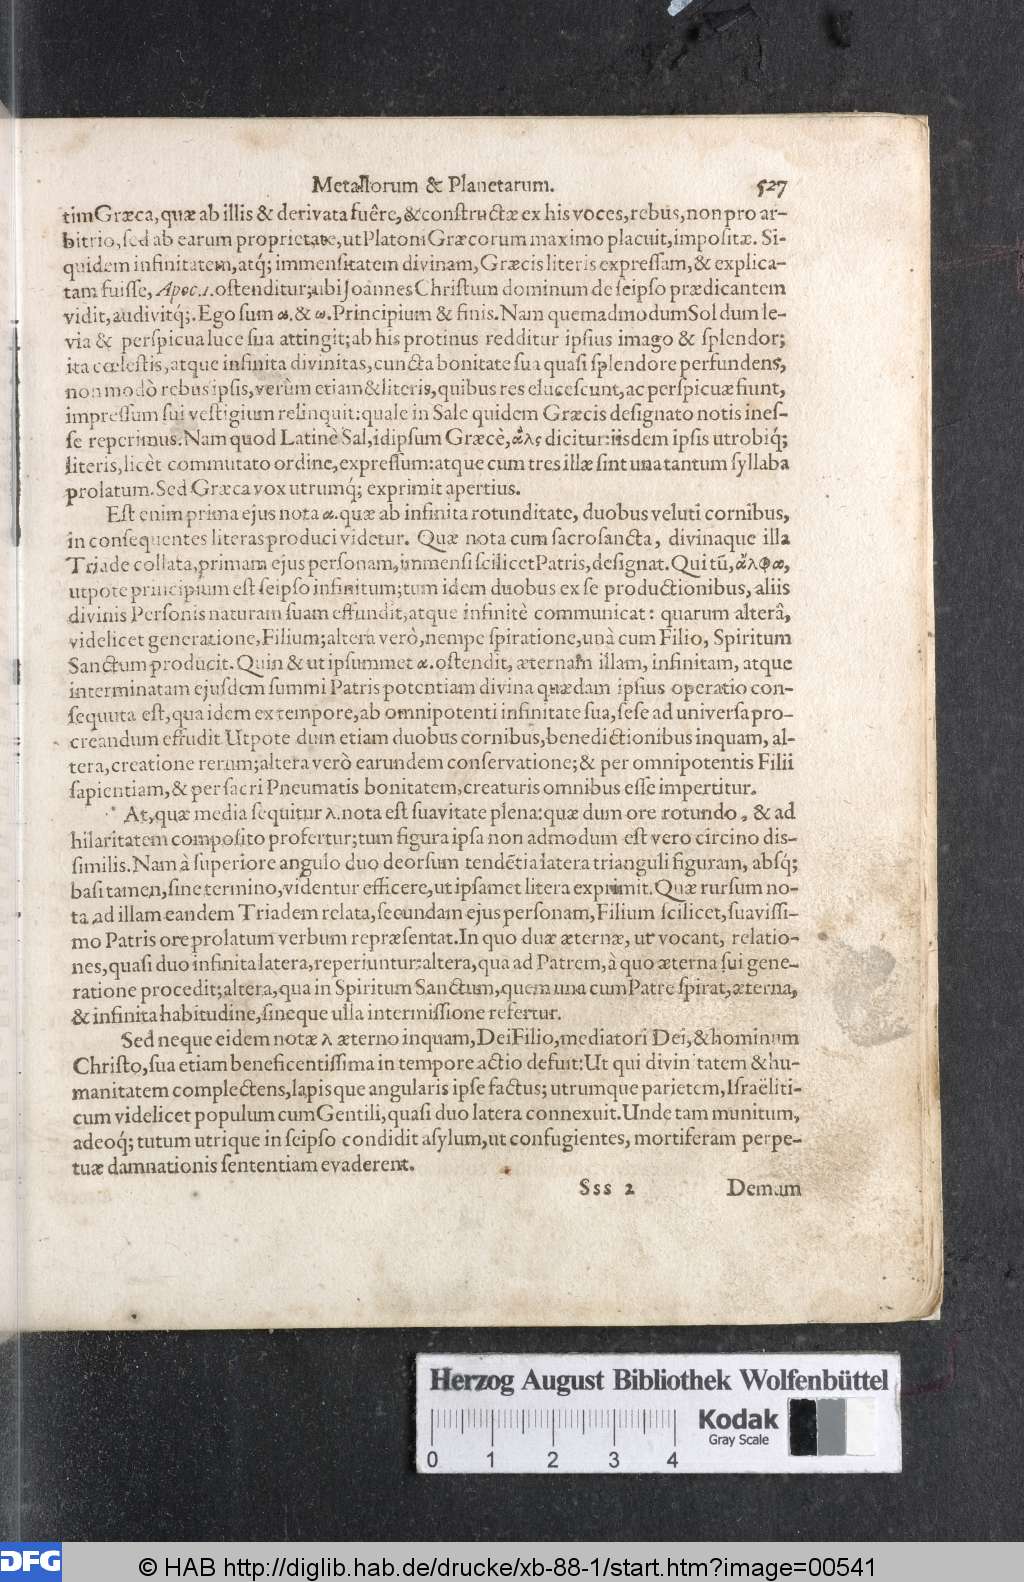 Metallorum & Planetarum. 527
tim Græca, quæ ab illis & derivata fuêre, & constructæ ex his voces, rebus, non pro ar-
bitrio, sed ab earum proprietate, ut Platoni Græcorum maximo placuit, impositæ. Si-
quidem infinitatem, atq́; immensitatem divinam, Græcis literis expressam, & explica-
tam fuisse, Apoc. 1. ostenditur; ubi Joannes Christum dominum de seipso prædicantem
vidit, audivitq́;. Ego sum α. & ω. Principium & finis. Nam quemadmodum Sol dum le-
via & perspicua luce sua attingit; ab his protinus redditur ipsius imago & splendor;
ita cœlestis, atque infinita divinitas, cuncta bonitate sua quasi splendore perfundens,
non modò rebus ipsis, verùm etiam & literis, quibus res elucescunt, ac perspicuæ fiunt,
impressum sui vestigium relinquit: quale in Sale quidem Græcis designato notis ines-
se reperimus. Nam quod Latinè Sal, id ipsum Græcè, ἅλς dicitur: iisdem ipsis utrobiq́;
literis, licèt commutato ordine, expressum: atque cum tres illæ sint una tantum syllaba
prolatum. Sed Græca vox utrumq́; exprimit apertius.
Est enim prima ejus nota α. quæ ab infinita rotunditate, duobus veluti cornibus,
in consequentes literas produci videtur. Quæ nota cum sacrosancta, divinaque illa
Triade collata, primam ejus personam, immensi scilicet Patris, designat. Qui tũ, ἄλφα,
utpote principium est seipso infinitum; tum idem duobus ex se productionibus, aliis
divinis Personis naturam suam effundit, atque infinitè communicat: quarum alterâ,
videlicet generatione, Filium; altera verò, nempe spiratione, unà cum Filio, Spiritum
Sanctum producit. Quin & ut ipsummet α. ostendit, æternam illam, infinitam, atque
interminatam ejusdem summi Patris potentiam divina quædam ipsius operatio con-
sequuta est, qua idem ex tempore, ab omnipotenti infinitate sua, sese ad universa pro-
creandum effudit. Utpote dum etiam duobus cornibus, benedictionibus inquam, al-
tera, creatione rerum; altera verò earundem conservatione; & per omnipotentis Filii
sapientiam, & per sacri Pneumatis bonitatem, creaturis omnibus esse impertitur.
At, quæ media sequitur λ. nota est suavitate plena: quæ dum ore rotundo, & ad
hilaritatem composito profertur; tum figura ipsa non admodum est vero circino dis-
similis. Nam à superiore angulo duo deorsum tendẽtia latera trianguli figuram, absq́;
basi tamen, sine termino, videntur efficere, ut ipsamet litera exprimit. Quæ rursum no-
ta ad illam eandem Triadem relata, secundam ejus personam, Filium scilicet, suavissi-
mo Patris ore prolatum verbum repræsentat. In quo duæ æternæ, ut vocant, relatio-
nes, quasi duo infinita latera, reperiuntur: altera, qua ad Patrem, à quo æterna sui gene-
ratione procedit; altera, qua in Spiritum Sanctum, quem una cum Patre spirat, æterna,
& infinita habitudine, sineque ulla intermissione refertur.
Sed neque eidem notæ λ æterno inquam, Dei Filio, mediatori Dei, & hominum
Christo, sua etiam beneficentissima in tempore actio defuit: Ut qui divin tatem & hu-
manitatem complectens, lapisque angularis ipse factus; utrumque parietem, Israëliti-
cum videlicet populum cum Gentili, quasi duo latera connexuit. Unde tam munitum,
adeoq́; tutum utrique in seipso condidit asylum, ut confugientes, mortiferam perpe-
tuæ damnationis sententiam evaderent.
Sss 2 Demum
Herzog August Bibliothek Wolfenbüttel
Kodak
Gray Scale
0 1 2 3 4
DFG
© HAB http://diglib.hab.de/drucke/xb-88-1/start.htm?image=00541